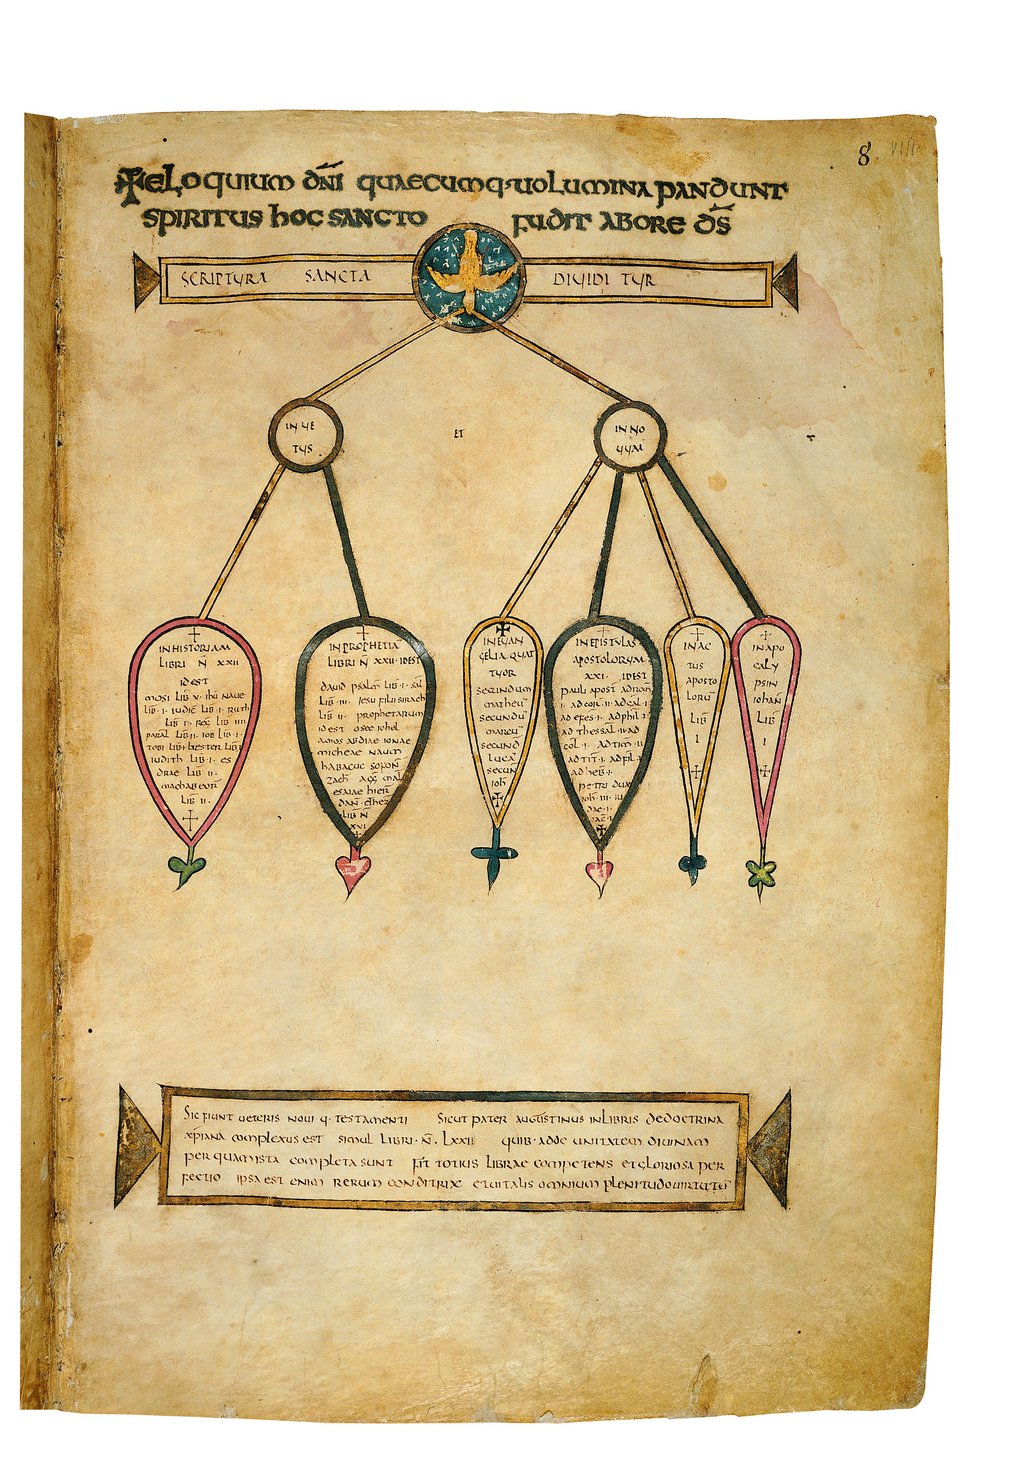 8 VIII
ELOQUIUM DN̄I QUAECUMQ·UOLUMINA PANDUNT
SPIRITUS HOC SANCTO FUDIT ABORE D̄S
SCRIPTVRA SANCTA DIVIDITVR
IN VE
TVS
ET
IN NO
VVM
IN HISTORIAM
LIBRI N̄ XXII
ID EST
MOSI LIB̄ V· IHŪ NAUE
LIB̄·I· IUDIC̄ LIB̄·I· RUTH
LIB̄ I· REḠ LIB̄ IIII
PARAL̄ LIB̄ II· IOB LIB̄·I·
TOBI LIB̄ I· HESTER LIB̄ I
IUDITH LIB̄·I· ES
DRAE LIB̄ II·
MACHABEOR̄
LIB̄ II·
IN PROPHETIĀ
LIBRI N̄ XXII· IDEST
DAUID PSALM̄ LIB̄·I· SAL̄
LIB̄·III· IESU FILII SIRACH
LIB̄ II· PROPHETARUM
IDEST OSEE IOHEL
AMOS ABDIAE IONAE
MICHEAE NAUM
HABACUC SOFON̄
ZACH̄ AGḠ MAL̄
ESAIAE HIER̄
DAN̄ EZHEC̄
LIB̄ N̄
XVI
IN EVAN
GELIA QVAT
TVOR
SECUNDUM
MATHEŪ
SECUNDŪ
MARCŪ
SECUND̄
LUCĀ
SECUN̄
IOH̄
IN EPISTVLAS
APOSTOLORVM
XXI· IDEST
PAULI APOST̄ AD ROM̄
I· AD COR̄·II· AD GAL̄·I
AD EFES·I· AD PHIL·I
AD THESSAL̄·II· AD
COL̄·I· AD TIM̄·II
AD TIT·I· AD FIL̄·I
AD HEB̄·I·
PETRI DUAE
IOH̄·III· IU
DAE·I·
IAC̄·I
IN AC
TUS
APOSTO
LORŪ
LIB̄
I
IN APO
CALY
PSIN
IOHAN̄
LIB̄
I
SIC FIUNT UETERIS NOUI Q· TESTAMENTI SICUT PATER AUGUSTINUS IN LIBRIS DE DOCTRINA
XP̄IANA COMPLEXUS EST SIMUL LIBRI·N̄·LXXII QUIB·ADDE UNITATEM DIUINAM
PER QUAM ISTA COMPLETA SUNT FIT TOTIUS LIBRAE COMPETENS ET GLORIOSA PER
FECTIO IPSA EST ENIM RERUM CONDITRIX ET UITALIS OMNIUM PLENITUDO UIRTUTŪ